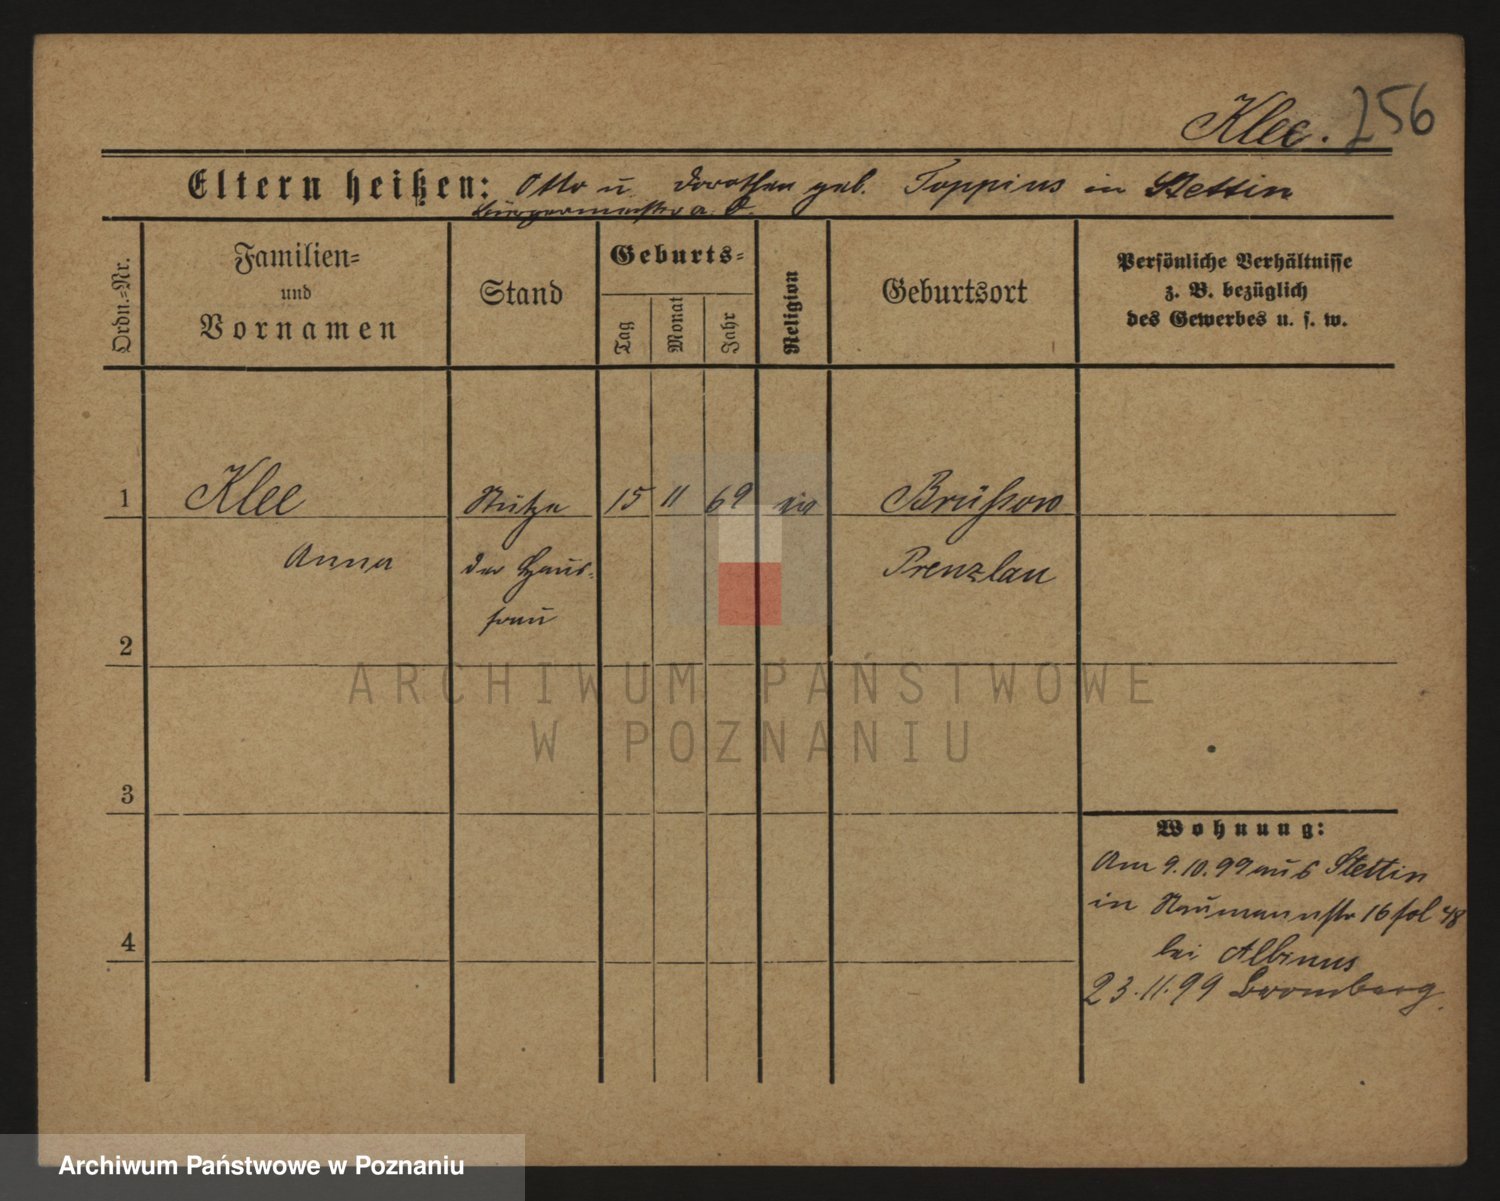 Klee. 256
Eltern heißen: Otto u Dorothea geb. Toppius in Stettin
Bürgermeister a. D.
Ordn.=Nr.
Familien=
und
Vornamen
Stand
Geburts=
Tag
Monat
Jahr
Religion
Geburtsort
Persönliche Verhältnisse
z. B. bezüglich
des Gewerbes u. s. w.
1 Klee Stütze 15 11 69 ev Brüssow
Anna der Haus- Prenzlau
frau
2
ARCHIWUM PAŃSTWOWE
W POZNANIU
3
Wohnung:
Am 9.10.99 aus Stettin
in Naumannstr 16 fol 48
4
bei Albinus
23.11.99 Bromberg.
Archiwum Państwowe w Poznaniu